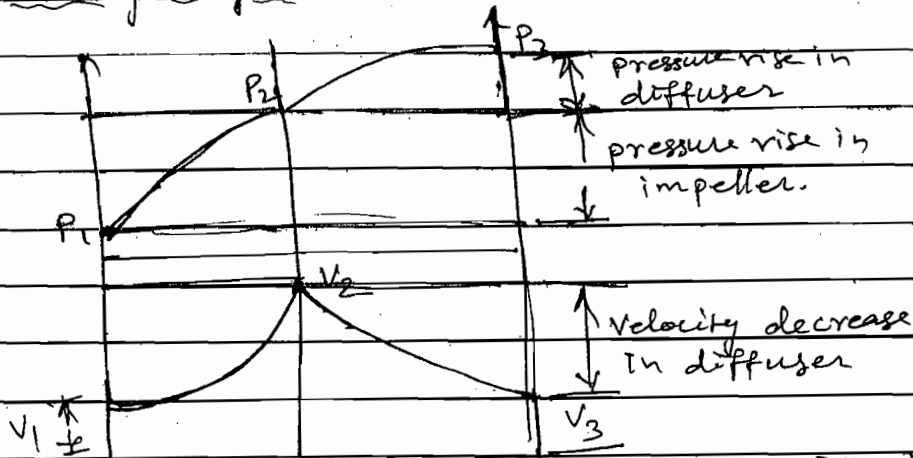 P3
pressure rise in
diffuser
P2
pressure rise in
impeller.
P1
V2
Velocity decrease
in diffuser
V1
V3